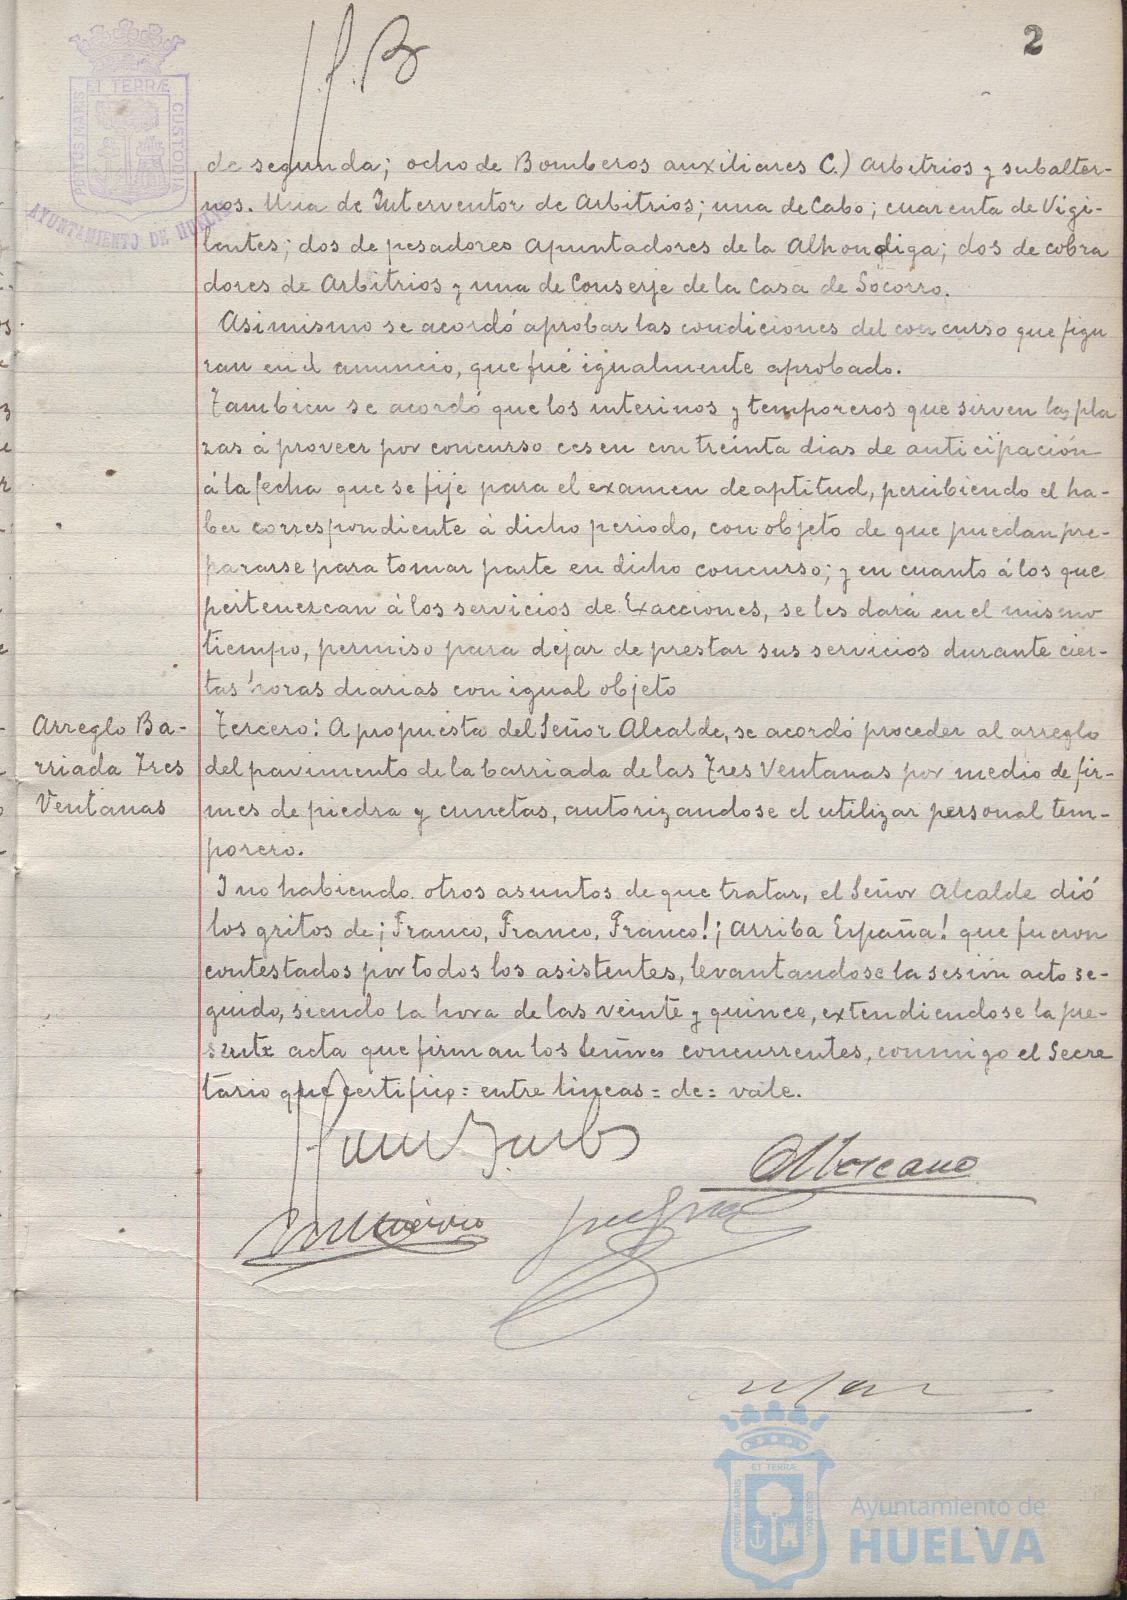 2
PORTUS MARIS
ET TERRÆ
CUSTODIA
AYUNTAMIENTO DE HUELVA
de segunda; ocho de Bomberos auxiliares C.) Arbitrios y subalter-
nos. Una de Interventor de Arbitrios; una de Cabo; cuarenta de Vigi-
lantes; dos de pesadores apuntadores de la Alhondiga; dos de cobra
dores de Arbitrios y una de Conserje de la Casa de Socorro.
Asimismo se acordó aprobar las condiciones del concurso que figu
ran en el anuncio, que fué igualmente aprobado.
Tambien se acordó que los interinos y temporeros que sirven las pla
zas á proveer por concurso cesen con treinta dias de anticipación
á la fecha que se fije para el examen de aptitud, percibiendo el ha-
ber correspondiente á dicho periodo, con objeto de que puedan pre-
pararse para tomar parte en dicho concurso; y en cuanto á los que
pertenezcan á los servicios de Exacciones, se les dará en el mismo
tiempo, permiso para dejar de prestar sus servicios durante cier-
tas horas diarias con igual objeto
Arreglo Ba-
rriada Tres
Ventanas
Tercero: A propuesta del Señor Alcalde, se acordó proceder al arreglo
del pavimento de la barriada de las Tres Ventanas por medio de fir-
mes de piedra y cunetas, autorizandose el utilizar personal tem-
porero.
Y no habiendo otros asuntos de que tratar, el Señor Alcalde dió
los gritos de ¡Franco, Franco, Franco! ¡Arriba España! que fueron
contestados por todos los asistentes, levantandose la sesión acto se-
guido, siendo la hora de las veinte y quince, extendiendose la pre-
sente acta que firman los Señores concurrentes, conmigo el Secre
tario que certifico = entre lineas = de = vale.
PORTUS MARIS
ET TERRÆ
CUSTODIA
Ayuntamiento de
HUELVA